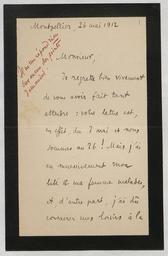 Montpellier, 26 mai 1912
Monsieur,
Je regrette bien vivement
de vous avoir fait tant
attendre : votre lettre est,
en effet, du 7 mai et nous
sommes au 26 ! Mais j'ai
eu successivement mon
bébé et ma femme malades,
et d'autre part, j'ai dû
consacrer mes loisirs à la